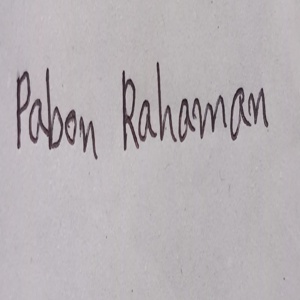 Pabon Rahaman